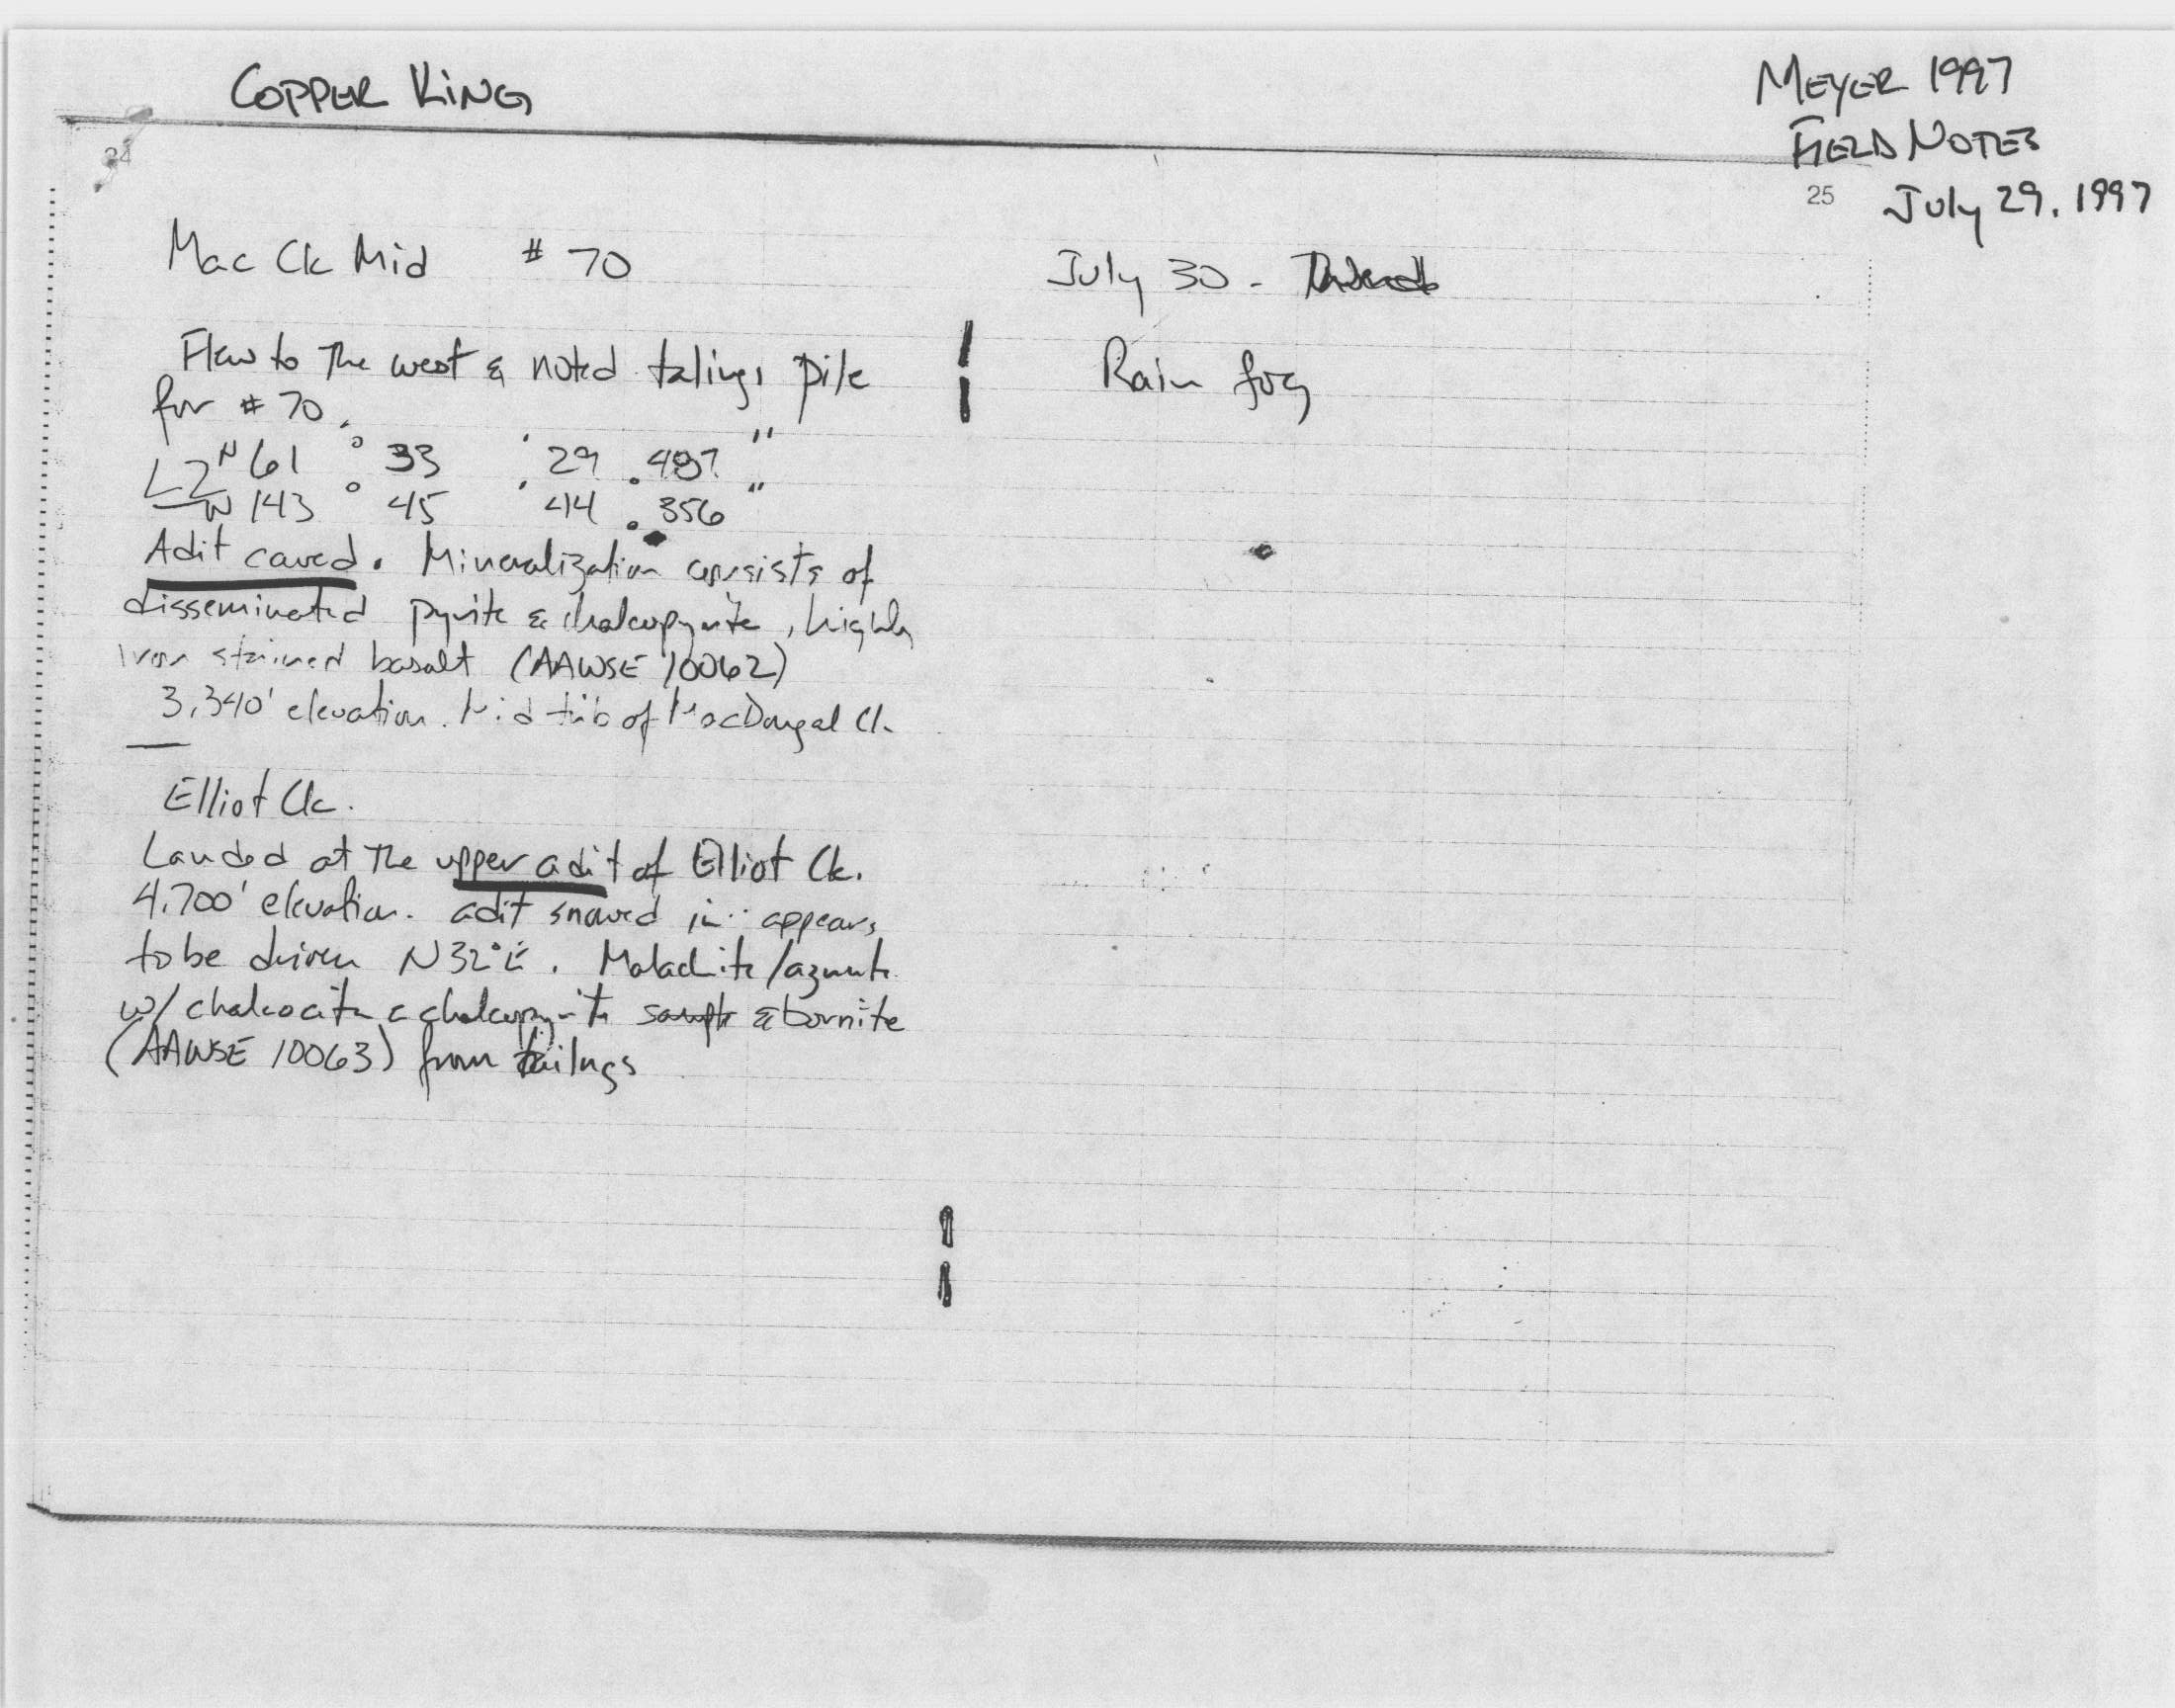 COPPER KING
MEYER 1997
FIELD NOTES
July 29, 1997
24
25
Mac Ck Mid # 70
Flew to The west & noted talings pile
for # 70.
N 61 ° 33 ' 29 . 487 "
W 143 ° 45 ' 44 . 356 "
Adit caved. Mineralization consists of
disseminated pyrite & chalcopyrite, highly
iron stained basalt (AAWSE 10062)
3,340' elevation. Mid trib of MacDougal Ck.
Elliot Ck.
Landed at The upper adit of Elliot Ck.
4,700' elevation. adit snowed in appears
to be driven N32°E. Malachite/azurite
w/ chalcocite & chalcopyrite sample & bornite
(AAWSE 10063) from tailngs
July 30 -
Rain fog